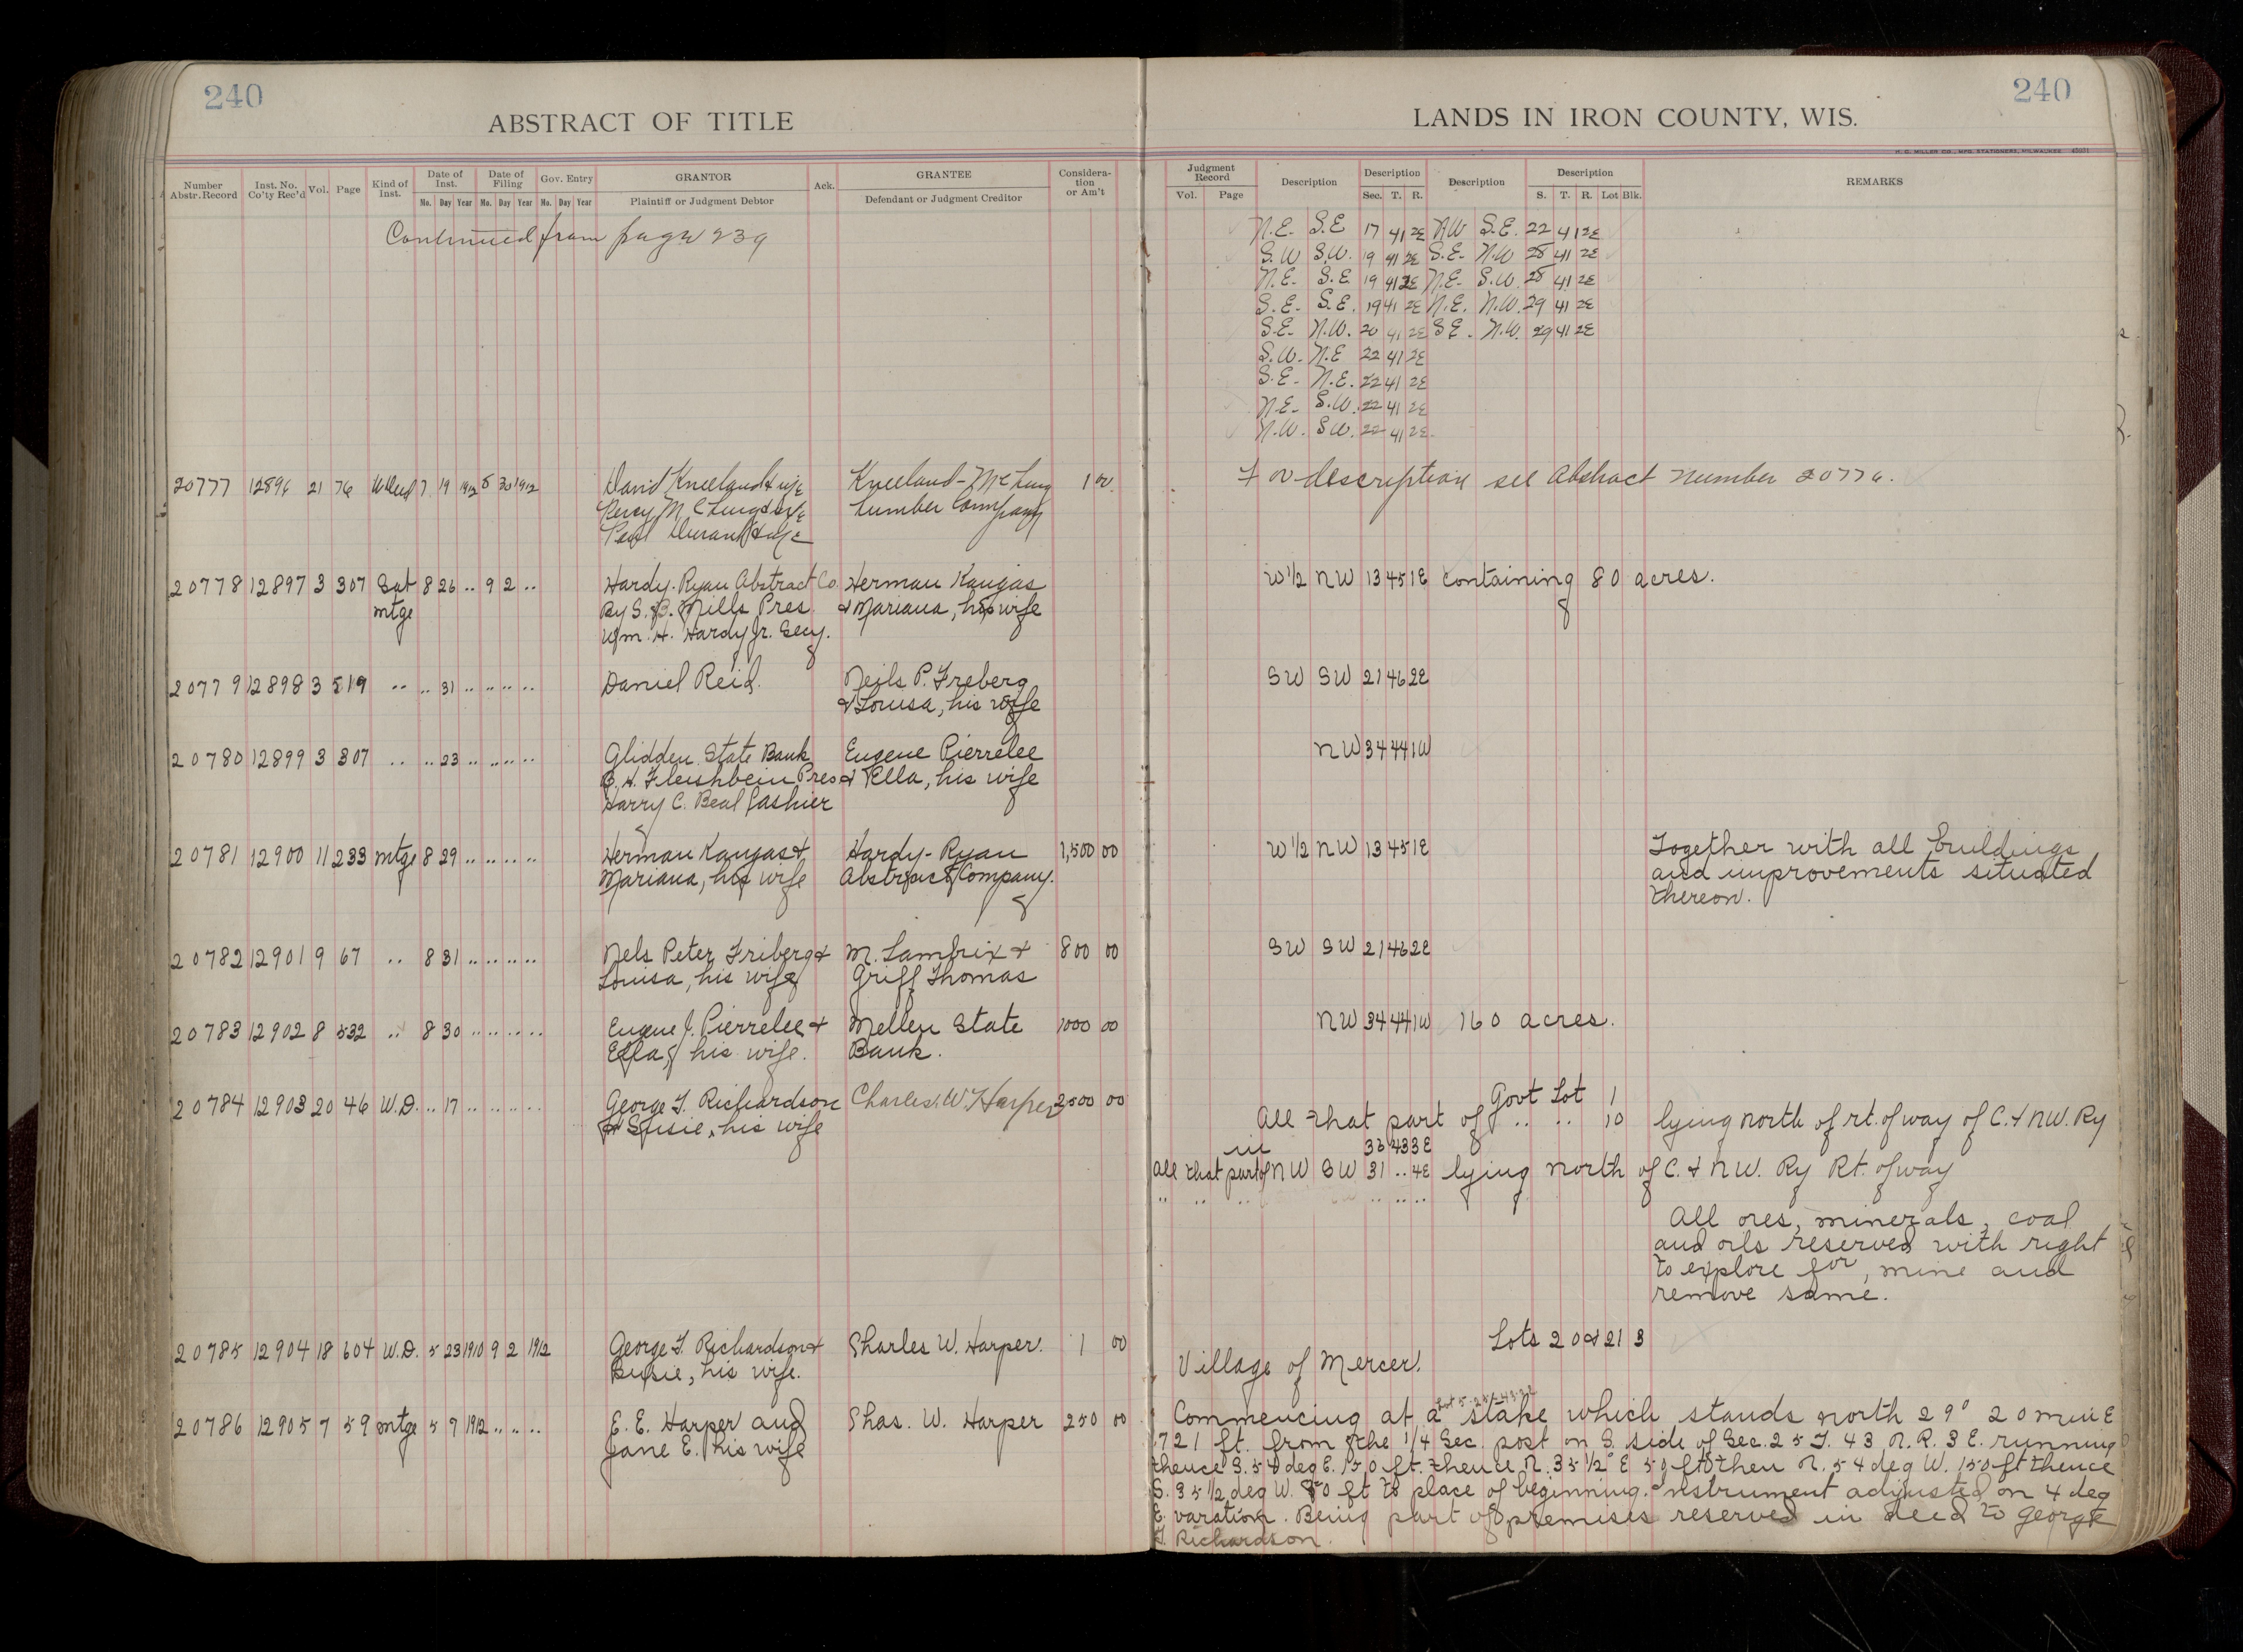 240
ABSTRACT OF TITLE
Number Abstr. Record
Inst. No. Co'ty Rec'd
Vol.
Page
Kind of Inst.
Date of Inst.
Mo. Day Year
Date of Filing
Mo. Day Year
Gov. Entry
Mo. Day Year
GRANTOR
Plaintiff or Judgment Debtor
Ack.
GRANTEE
Defendant or Judgment Creditor
Considera-
tion
or Am't
Continued from page 239
20777 12896 21 76 W Deed 7 19 1912 8 30 1912 David Kneeland & wife Kneeland-McLurg 1 00
Percy McLurg & wife Lumber Company
Durant & wife
20778 12897 3 307 Sat 8 26 .. 9 2 .. Hardy-Ryan Abstract Co. Herman Kangas
mtge By S. B. Mills Pres. & Mariana, his wife
Wm. H. Hardy Jr. Secy.
20779 12898 3 519 .. .. 31 .. .. .. .. Daniel Reid. Neils P. Freberg
& Louisa, his wife
20780 12899 3 307 .. .. 23 .. .. .. .. Glidden State Bank Eugene Pierrelee
B. H. Fleishbein Pres & Ella, his wife
Harry C. Beal Cashier
20781 12900 11 233 mtge 8 29 .. .. .. .. Herman Kangas & Hardy-Ryan 1,500 00
Mariana, his wife Abstract Company.
20782 12901 9 67 .. 8 31 .. .. .. .. Nels Peter Friberg & M. Lambrix & 800 00
Louisa, his wife Griff Thomas
20783 12902 8 532 .. 8 30 .. .. .. .. Eugene J. Pierrelee & Mellen State 1000 00
Ella, his wife. Bank.
20784 12903 20 46 W.D. .. 17 .. .. .. .. George T. Richardson Charles W. Harper 2500 00
& Susie, his wife
20785 12904 18 604 W.D. 5 23 1910 9 2 1912 George T. Richardson & Charles W. Harper. 1 00
Susie, his wife.
20786 12905 7 59 mtge 5 7 1912 .. .. .. E. E. Harper and Chas. W. Harper 250 00
Jane E. his wife
240
LANDS IN IRON COUNTY, WIS.
H. G. MILLER CO., MFG. STATIONERS, MILWAUKEE
Judgment Record
Vol. Page
Description
Description
Sec. T. R.
Description
Description
S. T. R. Lot Blk.
REMARKS
N.E. S.E 17 41 2E NW S.E. 22 41 2E
S.W S.W. 19 41 2E S.E. N.W 28 41 2E
N.E. S.E. 19 41 2E N.E. S.W. 28 41 2E
S.E. S.E. 19 41 2E N.E. N.W. 29 41 2E
S.E. N.W. 20 41 2E S E. N.W. 29 41 2E
S.W. N.E 22 41 2E
S.E. N.E. 22 41 2E
N.E. S.W. 22 41 2E
N.W. S.W. 22 41 2E.
For description see Abstract Number 20776.
W 1/2 NW 13 45 1E containing 80 acres.
SW SW 21 46 2E
NW 34 44 1W
W 1/2 NW 13 45 1E Together with all buildings
and improvements situated
thereon.
SW SW 21 46 2E
NW 34 44 1W 160 acres.
Govt Lot 1
All that part of .. .. 10 lying north of rt. of way of C. & NW. Ry
in 36 43 3E
All that part of NW SW 31 .. 4E lying north of C. & NW. Ry Rt. of way
.. .. .. .. .. ..
All ores, minerals, coal
and oils reserved with right
to explore for, mine and
remove same.
Lots 20 & 21 3
Village of Mercer.
Commencing at a stake which stands north 29° 20 min E
721 ft. from the 1/4 Sec. post on S. side of Sec. 25 T. 43 N. R. 3 E. running
thence S. 54 deg E. 150 ft. thence N. 35 1/2° E 50 ft then N. 54 deg W. 150 ft thence
S. 35 1/2 deg W. 50 ft to place of beginning. Instrument adjusted on 4 deg
E. varation. Being part of premises reserved in deed to George
T. Richardson.